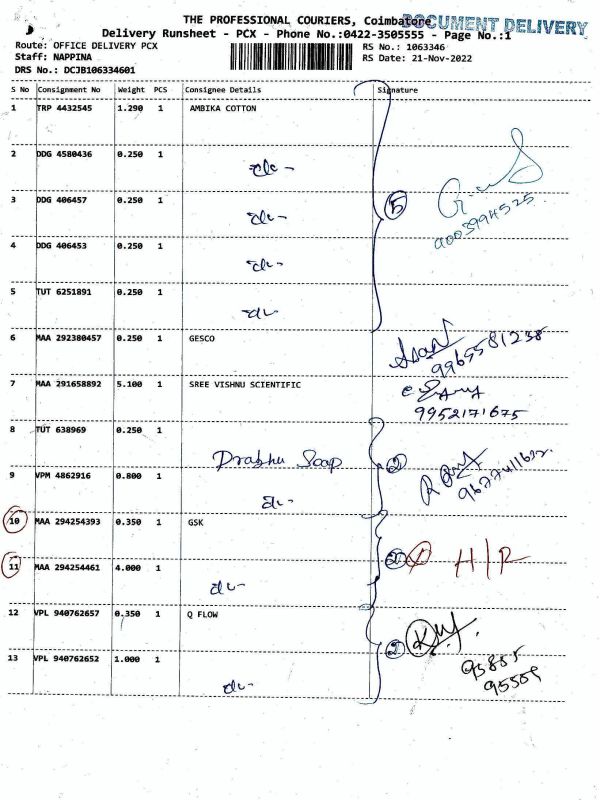 THE PROFESSIONAL COURIERS, Coimbatore
DOCUMENT DELIVERY
Delivery Runsheet - PCX - Phone No.:0422-3505555 - Page No.:1
Route: OFFICE DELIVERY PCX RS No.: 1063346
Staff: NAPPINA RS Date: 21-Nov-2022
DRS No.: DCJB106334601
S No Consignment No Weight PCS Consignee Details Signature
1 TRP 4432545 1.290 1 AMBIKA COTTON
2 DDG 4580436 0.250 1
3 DDG 406457 0.250 1 5
4 DDG 406453 0.250 1
5 TUT 6251891 0.250 1
6 MAA 292380457 0.250 1 GESCO
9965581238
7 MAA 291658892 5.100 1 SREE VISHNU SCIENTIFIC
9952171675
8 TUT 638969 0.250 1
Prabhu Soap 2
9 VPM 4862916 0.800 1
10 MAA 294254393 0.350 1 GSK
H/R
11 MAA 294254461 4.000 1
12 VPL 940762657 0.350 1 Q FLOW
2
13 VPL 940762652 1.000 1
95559